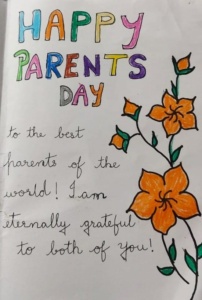 HAPPY
PARENTS
DAY
to the best
parents of the
world! I am
eternally grateful
to both of you!